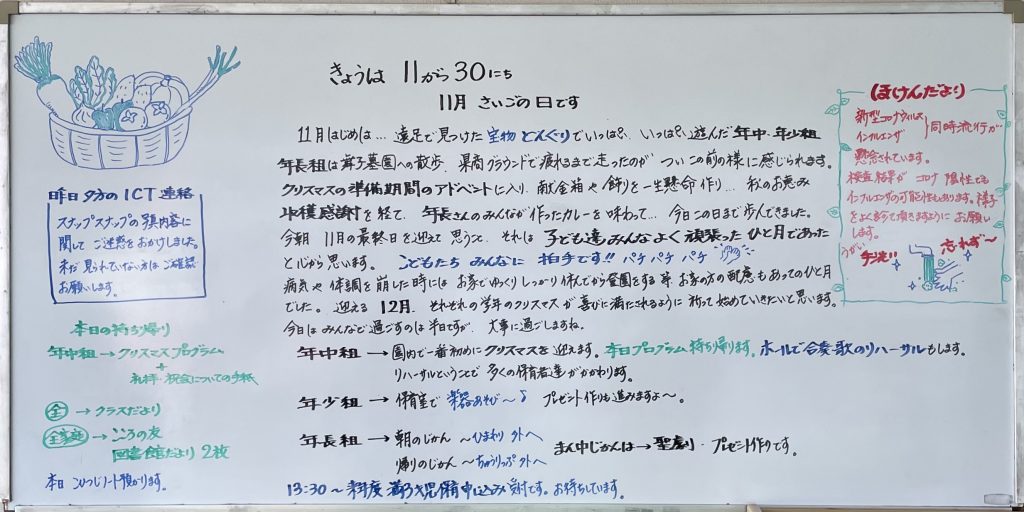 きょうは 11がつ30にち
11月 さいごの日です
11月はじめは… 遠足で見つけた 宝物 どんぐりでいっぱい、いっぱい遊んだ 年中・年少組
年長組は 墓園への散歩、グラウンドで疲れるまで走ったのが ついこの前の様に感じられます。
クリスマスの準備期間のアドベントに入り、献金箱や飾りを一生懸命作り… 秋のお恵み
収穫感謝を経て、年長さんのみんなが作ったカレーを味わって… 今日この日まで歩んできました。
今朝 11月の最終日を迎えて思うこと、それは 子ども達みんなよく頑張ったひと月であった
と心から思います。 こどもたち みんなに 拍手です!! パチ パチ パチ
病気や体調を崩した時には お家でゆっくりしっかり休んでから登園をする等 お家の方の配慮もあってのひと月
でした。迎える 12月、それぞれの学年のクリスマスが 喜びに満たされるように 祈って始めていきたいと思います。
今日は みんなで過ごすのは半日ですが、大事に過ごしますね。
年中組 → 園内で一番初めにクリスマスを迎えます。本日プログラム持ち帰ります。ホールで合奏・歌のリハーサルもします。
リハーサルということで 多くの保育者達がかかわります。
年少組 → 保育室で 楽器あそび〜♪ プレゼント作りも進みますよ〜。
年長組 → 朝のじかん 〜ひまわり 外へ
帰りのじかん 〜ちゅうりっぷ 外へ
まん中じかんは → 聖劇・プレゼント作りです。
13:30〜 来年度 満3才児保育申し込み 受付です。お待ちしています。
昨日夕方の ICT 連絡
スナップスナップの写真内容に
関して ご迷惑をおかけしました。
まだ見られていない方は ご確認
お願いします。
本日の持ち帰り
年中組 → クリスマスプログラム
+
礼拝・祝会についての手紙
全 → クラスだより
全家庭 → こころの友
図書館だより 2枚
本日 こひつじノート預かります。
ほけんだより
新型コロナウィルス
インフルエンザ
同時流行が
懸念されています。
検査結果が コロナ陽性でも
インフルエンザの可能性もあります。様子
をよくみて頂きますように お願い
します。
うがい
手洗い 忘れず〜